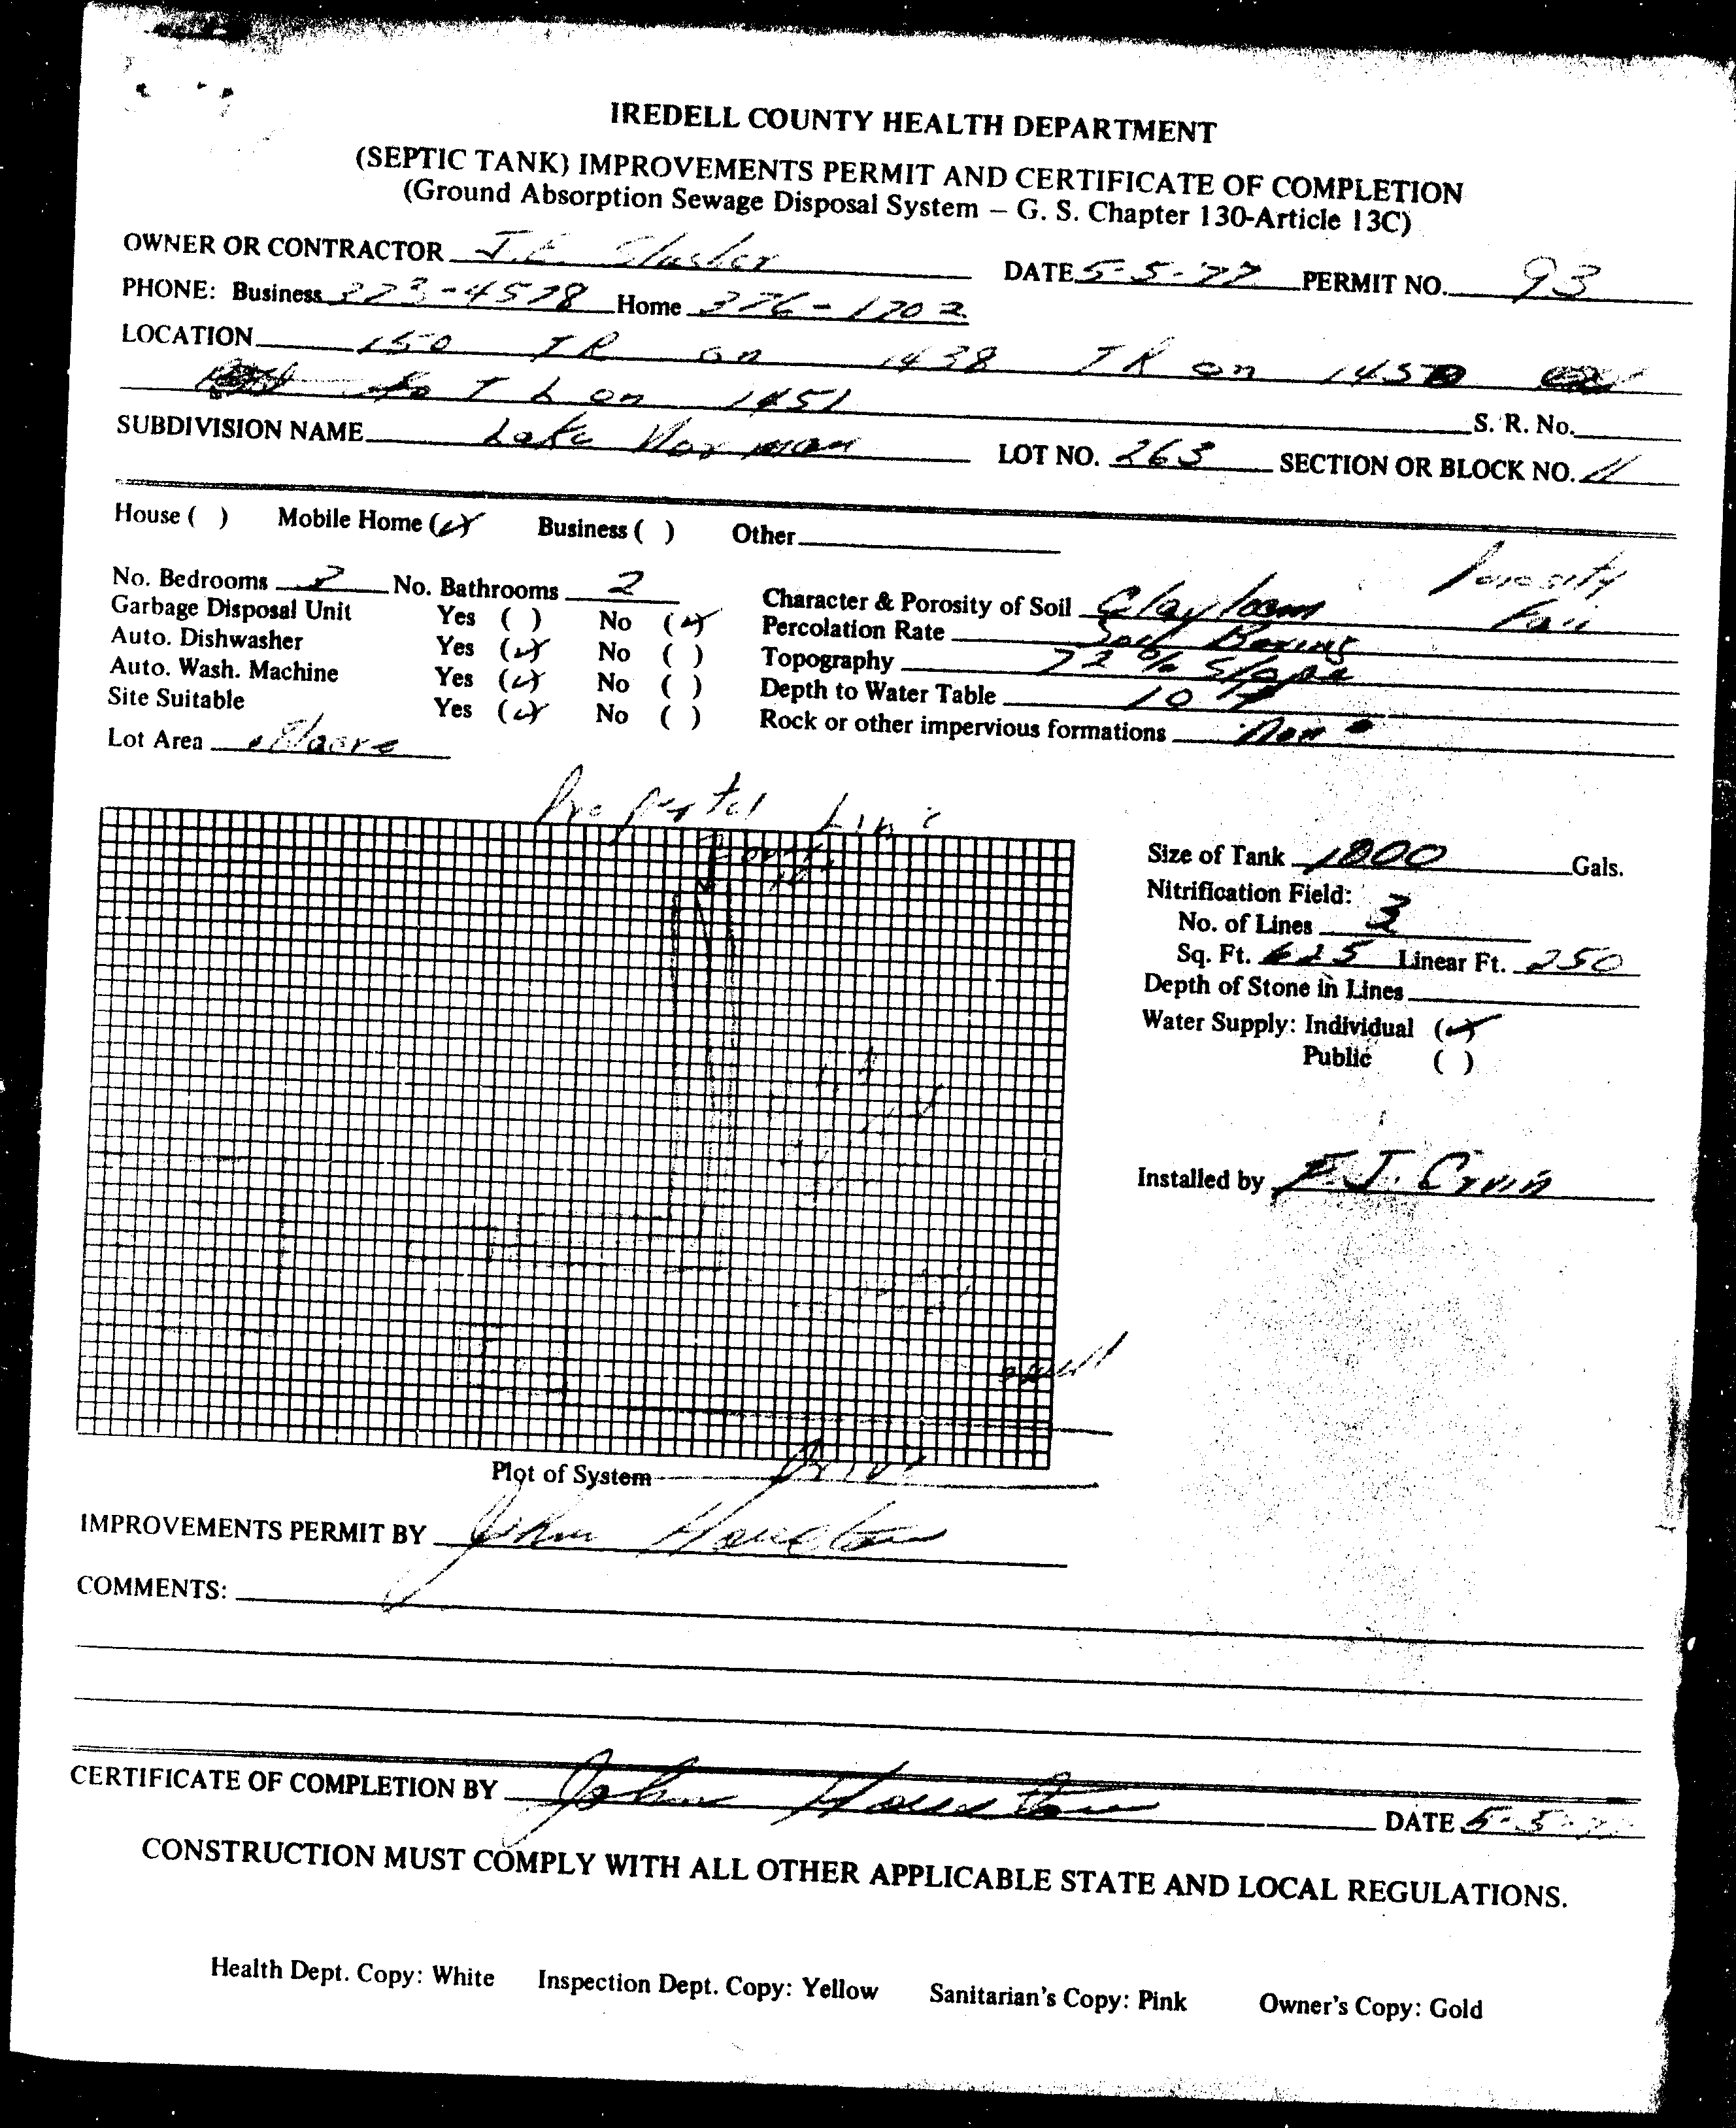 IREDELL COUNTY HEALTH DEPARTMENT
(SEPTIC TANK) IMPROVEMENTS PERMIT AND CERTIFICATE OF COMPLETION
(Ground Absorption Sewage Disposal System – G. S. Chapter 130-Article 13C)
OWNER OR CONTRACTOR J.E. Slusher DATE 5-5-77 PERMIT NO. 93
PHONE: Business 373-4578 Home 376-1702
LOCATION 150 TR on 1438 TR on 1450
to T L on 1451 S. R. No.
SUBDIVISION NAME Lake Norman LOT NO. 263 SECTION OR BLOCK NO. 11
House ( ) Mobile Home (✓) Business ( ) Other
Porosity
No. Bedrooms 2 No. Bathrooms 2 Character & Porosity of Soil Clay loam Fair
Garbage Disposal Unit Yes ( ) No (✓) Percolation Rate Soil Boring
Auto. Dishwasher Yes (✓) No ( ) Topography 22% Slope
Auto. Wash. Machine Yes (✓) No ( ) Depth to Water Table 10 ft
Site Suitable Yes (✓) No ( ) Rock or other impervious formations None
Lot Area
Line
Size of Tank 1000 Gals.
Nitrification Field:
No. of Lines 3
Sq. Ft. 625 Linear Ft. 250
Depth of Stone in Lines
Water Supply: Individual (✓)
Public ( )
Installed by F. J. Ervin
well
Plot of System Drive
IMPROVEMENTS PERMIT BY John Houston
COMMENTS:
CERTIFICATE OF COMPLETION BY John Houston DATE 5-5-77
CONSTRUCTION MUST COMPLY WITH ALL OTHER APPLICABLE STATE AND LOCAL REGULATIONS.
Health Dept. Copy: White Inspection Dept. Copy: Yellow Sanitarian's Copy: Pink Owner's Copy: Gold